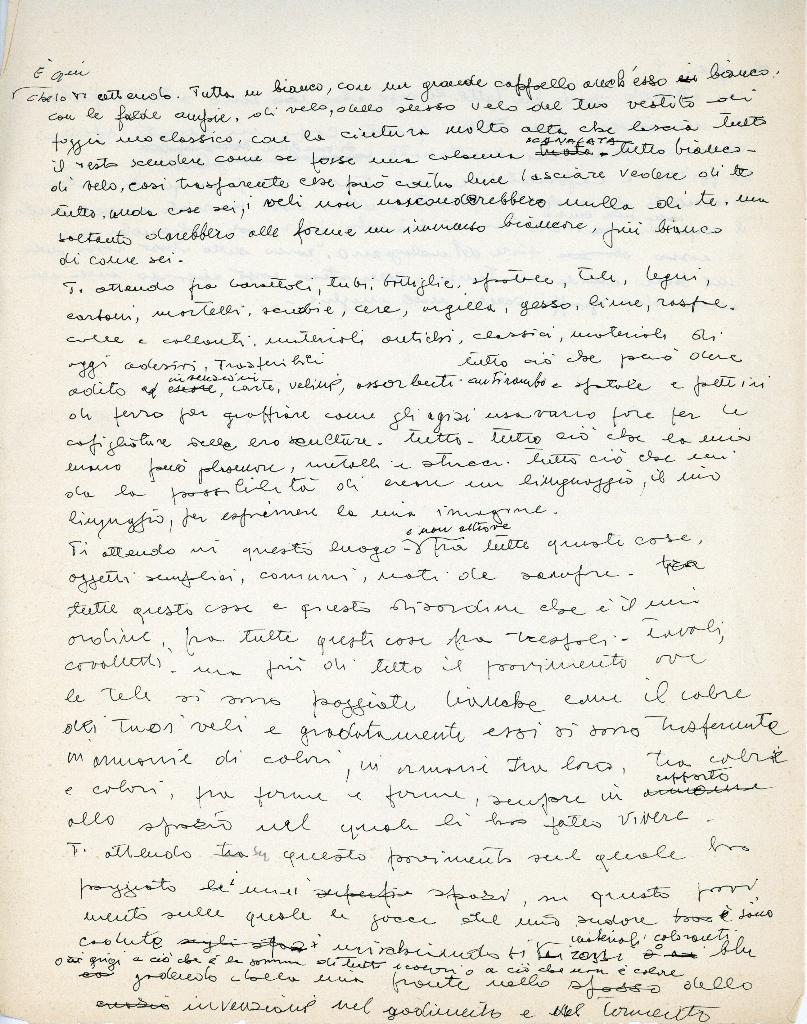 È qui
che lo ti attendo. Tutta in bianco, con un grande cappello anch'esso in bianco,
con le falde ampie, di velo, dello stesso velo del tuo vestito di
foggia neoclassico, con la cintura molto alta che lascia tutto
il resto scendere come se fosse una colonna SCANALATA tutto bianco -
di velo, così trasparente che può contro luce lasciare vedere di te
tutto. nuda come sei, i veli non nasconderebbero nulla di te, ma
soltanto darebbero alle forme un immenso biancore, più bianco
di come sei.
Ti attendo fra barattoli, tubi, bottiglie, spatole, tele, legni,
cartoni, martelli, sgorbie, cere, argilla, gesso, lime, raspe,
colle e collanti, materiali antichi, classici, materiali di
oggi adesivi, trasferibili tutto ciò che può dare
adito ad invenzioni, carte, veline, assorbenti antirombo e spatole e pettini
di ferro per graffiare come gli egizi usavano fare per le
capigliature delle loro sculture. tutto. tutto ciò che la mia
mano può plasmare, metalli e stucchi. tutto ciò che mi
da la possibilità di creare un linguaggio, il mio
linguaggio, per esprimere la mia imagine.
Ti attendo in questo luogo e non altrove tra tutte queste cose,
oggetti semplici, comuni, noti da sempre. tra
tutte queste cose e questo disordine che è il mio
ordine, fra tutte queste cose fra trespoli. tavoli,
cavalletti. ma più di tutto il pavimento ove
le tele si sono poggiate bianche come il colore
dei tuoi veli e gradatamente essi si sono trasformate
in armonie di colori, in armonie tra loro, tra colore
e colori, fra forme e forme, sempre in rapporto
allo spazio nel quale li ho fatto vivere.
Ti attendo su questo pavimento sul quale ho
poggiato i miei spazi, su questo pavi
mento sulle quale le gocce del mio sudore sono
cadute mischiandosi ai materiali coloranti rossi o blu
o ai grigi a ciò che è la somma di tutti i colori o a ciò che non è colore
grondando dalla mia fronte nello dello
invenzione nel godimento e nel tormento